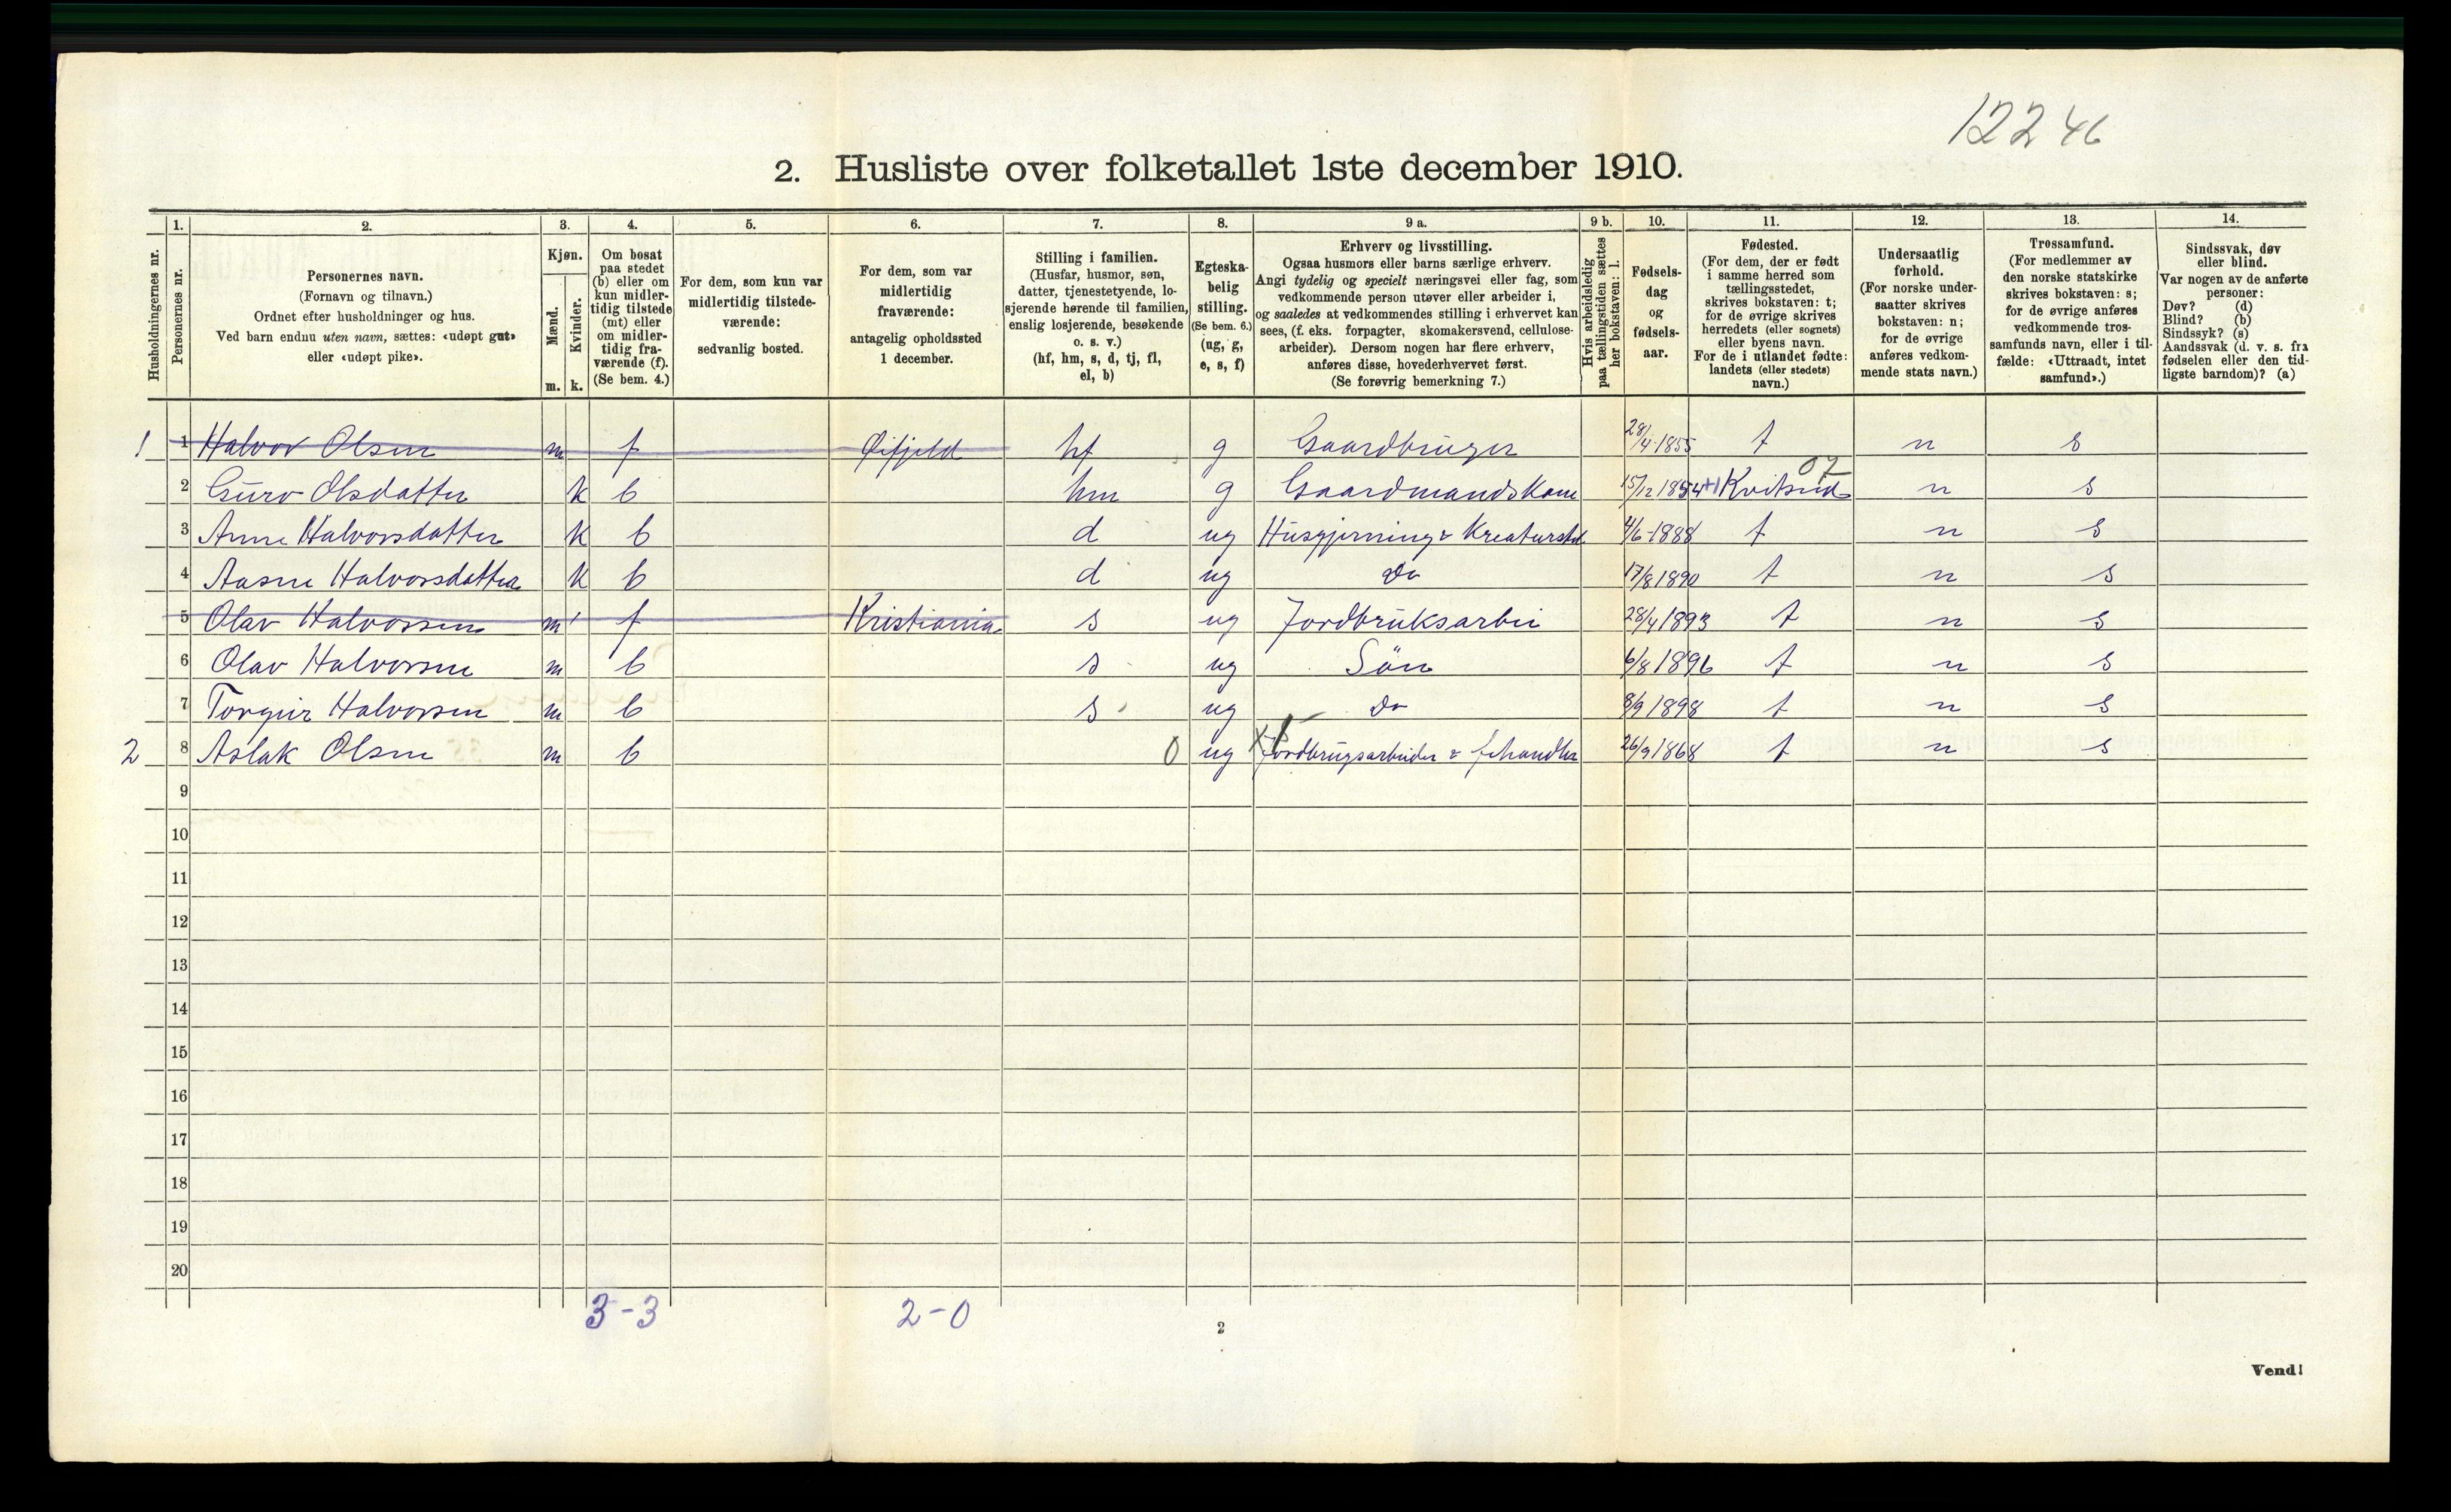 12246
2. Husliste over folketallet 1ste december 1910.
Husholdningernes nr.
1.
Personernes nr.
2.
Personernes navn.
(Fornavn og tilnavn.)
Ordnet efter husholdninger og hus.
Ved barn endnu uten navn, sættes: «udøpt gut»
eller «udøpt pike».
3.
Kjøn.
Mænd.
Kvinder.
m. k.
4.
Om bosat
paa stedet
(b) eller om
kun midler-
tidig tilstede
(mt) eller
om midler-
tidig fra-
værende (f).
(Se bem. 4.)
5.
For dem, som kun var
midlertidig tilstede-
værende:
sedvanlig bosted.
6.
For dem, som var
midlertidig
fraværende:
antagelig opholdssted
1 december.
7.
Stilling i familien.
(Husfar, husmor, søn,
datter, tjenestetyende, lo-
sjerende hørende til familien,
enslig losjerende, besøkende
o. s. v.)
(hf, hm, s, d, tj, fl,
el, b)
8.
Egteska-
belig
stilling.
(Se bem. 6.)
(ug, g,
e, s, f)
9 a.
Erhverv og livsstilling.
Ogsaa husmors eller barns særlige erhverv.
Angi tydelig og specielt næringsvei eller fag, som
vedkommende person utøver eller arbeider i,
og saaledes at vedkommendes stilling i erhvervet kan
sees, (f. eks. forpagter, skomakersvend, cellulose-
arbeider). Dersom nogen har flere erhverv,
anføres disse, hovederhvervet først.
(Se forøvrig bemerkning 7.)
9 b.
Hvis arbeidsledig
paa tællingstiden sættes
her bokstaven: l.
10.
Fødsels-
dag
og
fødsels-
aar.
11.
Fødested.
(For dem, der er født
i samme herred som
tællingsstedet,
skrives bokstaven: t;
for de øvrige skrives
herredets (eller sognets)
eller byens navn.
For de i utlandet fødte:
landets (eller stedets)
navn.)
12.
Undersaatlig
forhold.
(For norske under-
saatter skrives
bokstaven: n;
for de øvrige
anføres vedkom-
mende stats navn.)
13.
Trossamfund.
(For medlemmer av
den norske statskirke
skrives bokstaven: s;
for de øvrige anføres
vedkommende tros-
samfunds navn, eller i til-
fælde: «Uttraadt, intet
samfund».)
14.
Sindssvak, døv
eller blind.
Var nogen av de anførte
personer:
Døv? (d)
Blind? (b)
Sindssyk? (s)
Aandssvak (d. v. s. fra
fødselen eller den tid-
ligste barndom)? (a)
1 1 Halvor Olsen m f Øifjeld hf g Gaardbruger 28/4 1855 t n s
2 Guro Olsdatter k b hm g Gaardmandskone 15/12 1854 +1 Kvitseid 07 n s
3 Anne Halvorsdatter k b d ug Husgjerning & Kreaturstel 4/6-1888 t n s
4 Aasne Halvorsdatter k b d ug Do 17/8 1890 t n s
5 Olav Halvorsen m f Kristiania s ug Jordbruksarbei 28/4 1893 t n s
6 Olav Halvorsen m b s ug Søn 6/8 1896 t n s
7 Torgeir Halvorsen m b s ug Do 8/9 1898 t n s
2 8 Aslak Olsen m b 0 ug Jordbrugsarbeider & fehandler 26/9 1868 t n s
9
10
11
12
13
14
15
16
17
18
19
20
3-3 2-0
2
Vend!